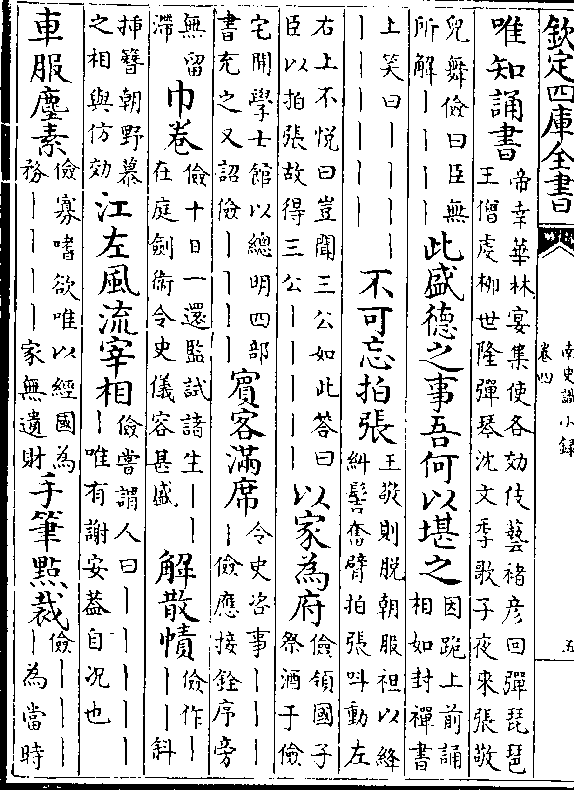 欽定四庫全書
南史識小錄
卷四
五
唯知誦書
帝幸華林宴集使各効伎藝褚彦回彈琵琶
王僧虔柳世隆彈琴沈文季歌子夜來張敬
兒舞儉曰臣無
所解丨丨丨丨
此盛德之事吾何以堪之
因跪上前誦
相如封禪書
上笑曰丨丨丨丨
丨丨丨丨丨
不可忘拍張
王敬則脱朝服袒以絳
糾髻奮臂拍張呌動左
右上不悦曰豈聞三公如此答曰
臣以拍張故得三公丨丨丨丨丨
以家為府
儉領國子
祭酒于儉
宅開學士館以總明四部
書充之又詔儉丨丨丨丨
賓客滿席
令史咨事丨丨丨
丨儉應接銓序旁
無留
滯
巾卷
儉十日一還監試諸生丨丨
在庭劍衛令史儀容甚盛
解散幘
儉作丨
丨丨斜
挿簪朝野慕
之相與仿効
江左風流宰相
儉嘗謂人曰丨丨丨丨丨
丨唯有謝安葢自况也
車服塵素
儉寡嗜欲唯以經國為
務丨丨丨丨家無遺財
手筆點裁
儉丨丨丨
丨為當時